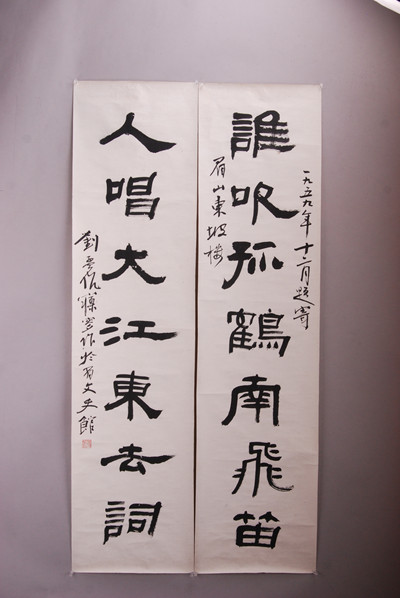 一九五九年十二月題寄
誰吹孤鶴南飛笛
眉山東坡樓
人唱大江東去詞
劉孟伉 作於 文史館